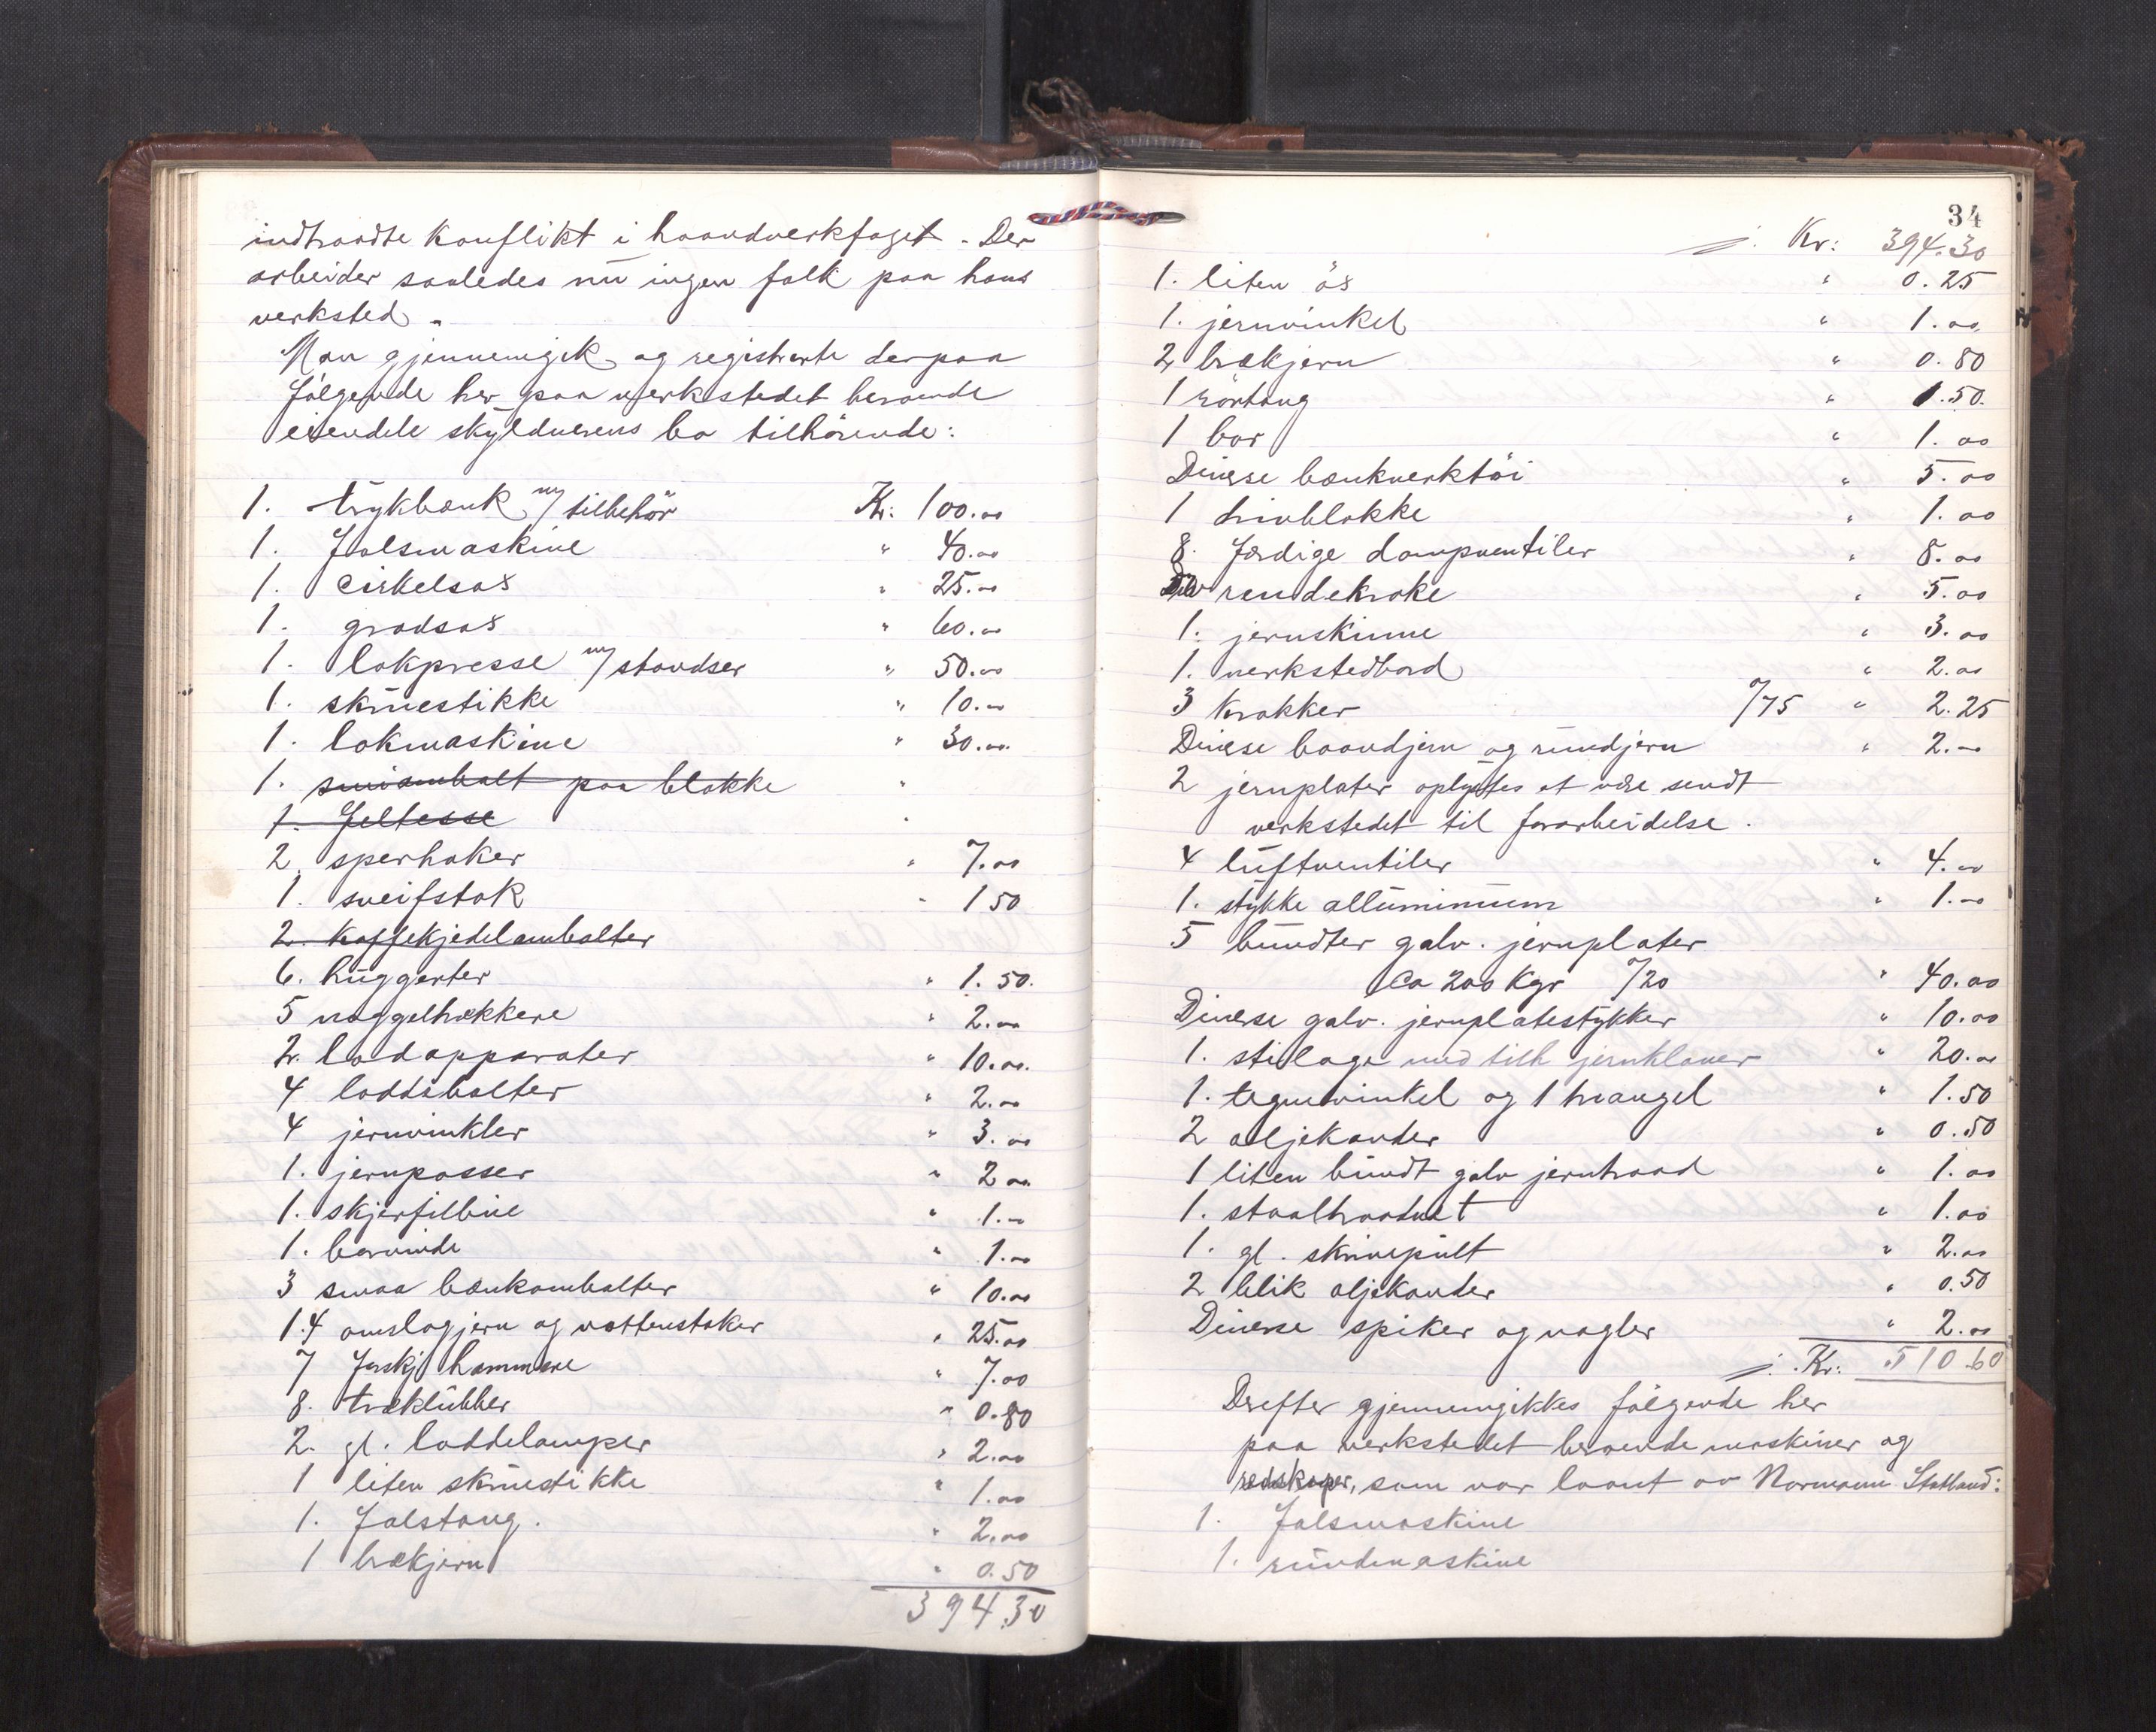 indtraadte konflikt i haandverkfaget. Der
arbeider saaledes nu ingen folk paa hans
verksted.
Man gjennemgik og registrerte derpaa
følgende her paa verkstedet beroende
eiendele skyldnerens bo tilhörende:
1. trykbænk m/ tilbehör Kr. 100.00
1. falsmaskine " 40.00
1. cirkelsax " 25.00
1. gradsax " 60.00
1. lokpresse m/ standser " 50.00
1. skruestikke " 10.00
1. lokmaskine " 30.00
1. smiambolt paa blokke "
1. feltesse "
2. sperhaker " 7.00
1. sveifstok " 1 50
2. kaffekjedelambolter
6. huggerter " 1.50.
5 naggeltrækkere " 2.00
2. lodapparater " 10.00.
4 loddebolter " 2.00
4 jernvinkler " 3.00
1. jernpasser " 2 00
1. skjærfilbue " 1.00
1. borvinde " 1.00
3 smaa bænkambolter " 10.00
14 omslagjern og vattenstaker " 25.00
7 forskj hammere " 7.00
8. træklubber " 0.80
2. gl. loddelamper " 2.00
1 liten skruestikke " 1.00
1. falstang. " 2.00
1 brækjern " 0.50
394.30
34
Kr: 394.30
1. liten øs " 0.25
1. jernvinkel " 1.00
2 brækjern " 0.80
1 rörtang " 1.50.
1 bor " 1.00
Diverse bænkverktöi " 5.00
1 drivblokke " 1.00
8. færdige dampventiler " 8.00
rendekroke " 5.00
1. jernskinne " 3.00
1. verkstedbord " 2.00
3 krakker à/75 " 2.25
Diverse baandjern og rundjern " 2.00
2 jernplater oplystes at være sendt
verkstedet til forarbeidelse.
4 luftventiler " 4.00
1. stykke alluminium " 1.00
5 bundter galv. jernplater
Ca 200 Kgr à/20 " 40.00
Diverse galv. jernplatestykker " 10.00
1. stilage med tilh jernklaver " 20.00
1. tegnevinkel og 1 triangel " 1.50
2 oljekander " 0.50
1 liten bundt galv jerntraad " 1.00
1. staaltraadnet " 1.00
1. gl. skrivepult " 2.00
2 blik oljekander " 0.50
Diverse spiker og nagler " 2.00
Kr: 510.60
Derefter gjennemgikkes følgende her
paa verkstedet beroende maskiner og
redskaper, som var laant av Normann Statland:
1. falsmaskine
1. rundmaskine